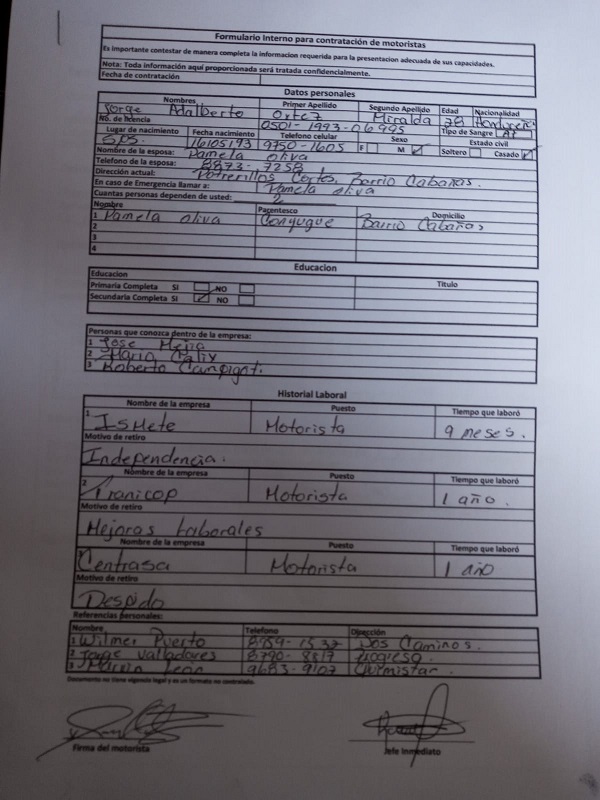 Formulario Interno para contratación de motoristas
Es importante contestar de manera completa la informacion requerida para la presentacion adecuada de sus capacidades.
Nota: Toda información aquí proporcionada será tratada confidencialmente.
Fecha de contratación
Datos personales
Nombres Primer Apellido Segundo Apellido Edad Nacionalidad
Jorge Adalberto Ortez Miralda 28
No. de licencia 0501-1993-06995 Tipo de Sangre
Lugar de nacimiento Fecha nacimiento Telefono celular Sexo Estado civil
S.P.S. 16/05/93 9750-1605 F M Soltero Casado
Nombre de la esposa: Pamela oliva
Telefono de la esposa: 8873-7258
Dirección actual: Potrerillos Cortes, Barrio Cabañas.
En caso de Emergencia llamar a: Pamela oliva
Cuantas personas dependen de usted: 2
Nombre Parentesco Domicilio
1 Pamela oliva Conyugue Barrio Cabañas
2
3
4
Educacion
Educacion Titulo
Primaria Completa SI NO
Secundaria Completa SI NO
Personas que conozca dentro de la empresa:
1 Jose Mejia
2 Mario
3 Roberto
Historial Laboral
Nombre de la empresa Puesto Tiempo que laboró
1 Motorista 9 meses.
Motivo de retiro
Independencia.
Nombre de la empresa Puesto Tiempo que laboró
2 Tranicop Motorista 1 año.
Motivo de retiro
Mejoras Laborales
Nombre de la empresa Puesto Tiempo que laboró
Centrasa Motorista 1 año
Motivo de retiro
Despido
Referencias personales:
Nombre Telefono Dirección
1 Wilmer Puerto Dos Caminos.
2 Jorge Valladares 8790-8817 Progreso.
3 Marvin León 9683-9107 Quimistan.
Documento no tiene vigencia legal y es un formato no controlado.
Firma del motorista Jefe Inmediato